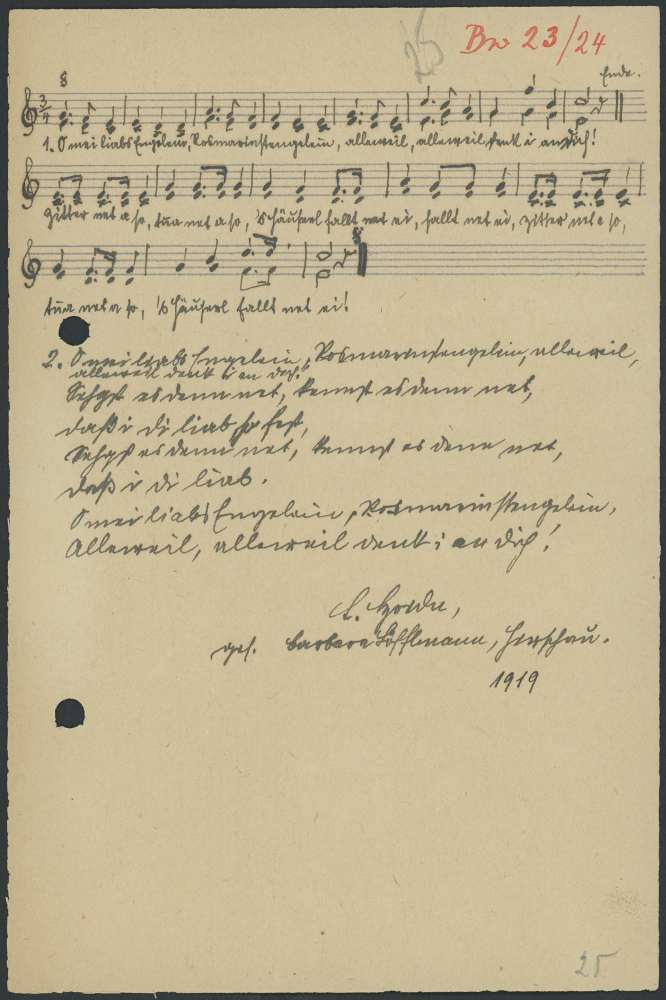 25
Bw 23/24
8
Ende.
3/4
1. O mei liabs Engelein, Rosmarinstengelein, alleweil, alleweil denk i an dich!
Zitter net a so, tua net a so, 's Häuserl fallt net ei, fallt net ei, zitter net a so,
8
tua net a so, 's Häuserl fallt net ei!
2. O mei liabs Engelein, Rosmarinstengelein, alleweil,
alleweil denk i an dich!
Sehgst es denn net, kennst es denn net,
daß i di liab so fest,
Sehgst es denn net, kennst es denn net,
daß i di liab.
O mei liabs Engelein, Rosmarinstengelein,
Alleweil, alleweil denk i an dich!
ges. Barbara Löfflmann, Hirschau.
1919
25